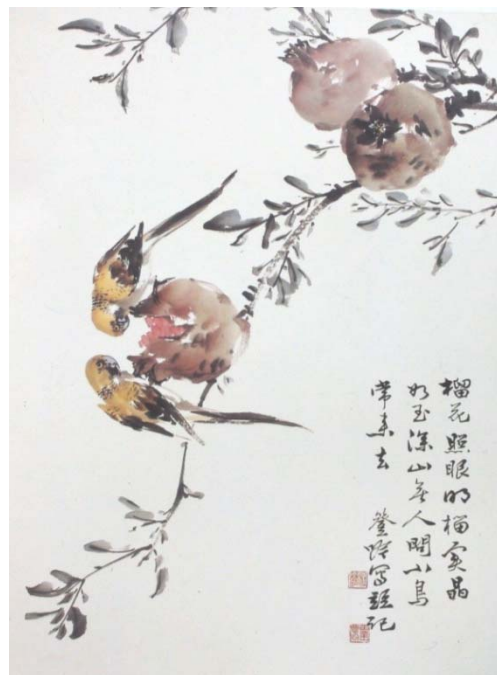 榴花照眼明榴實晶
如玉深山無人問小鳥
常來去 寫題記